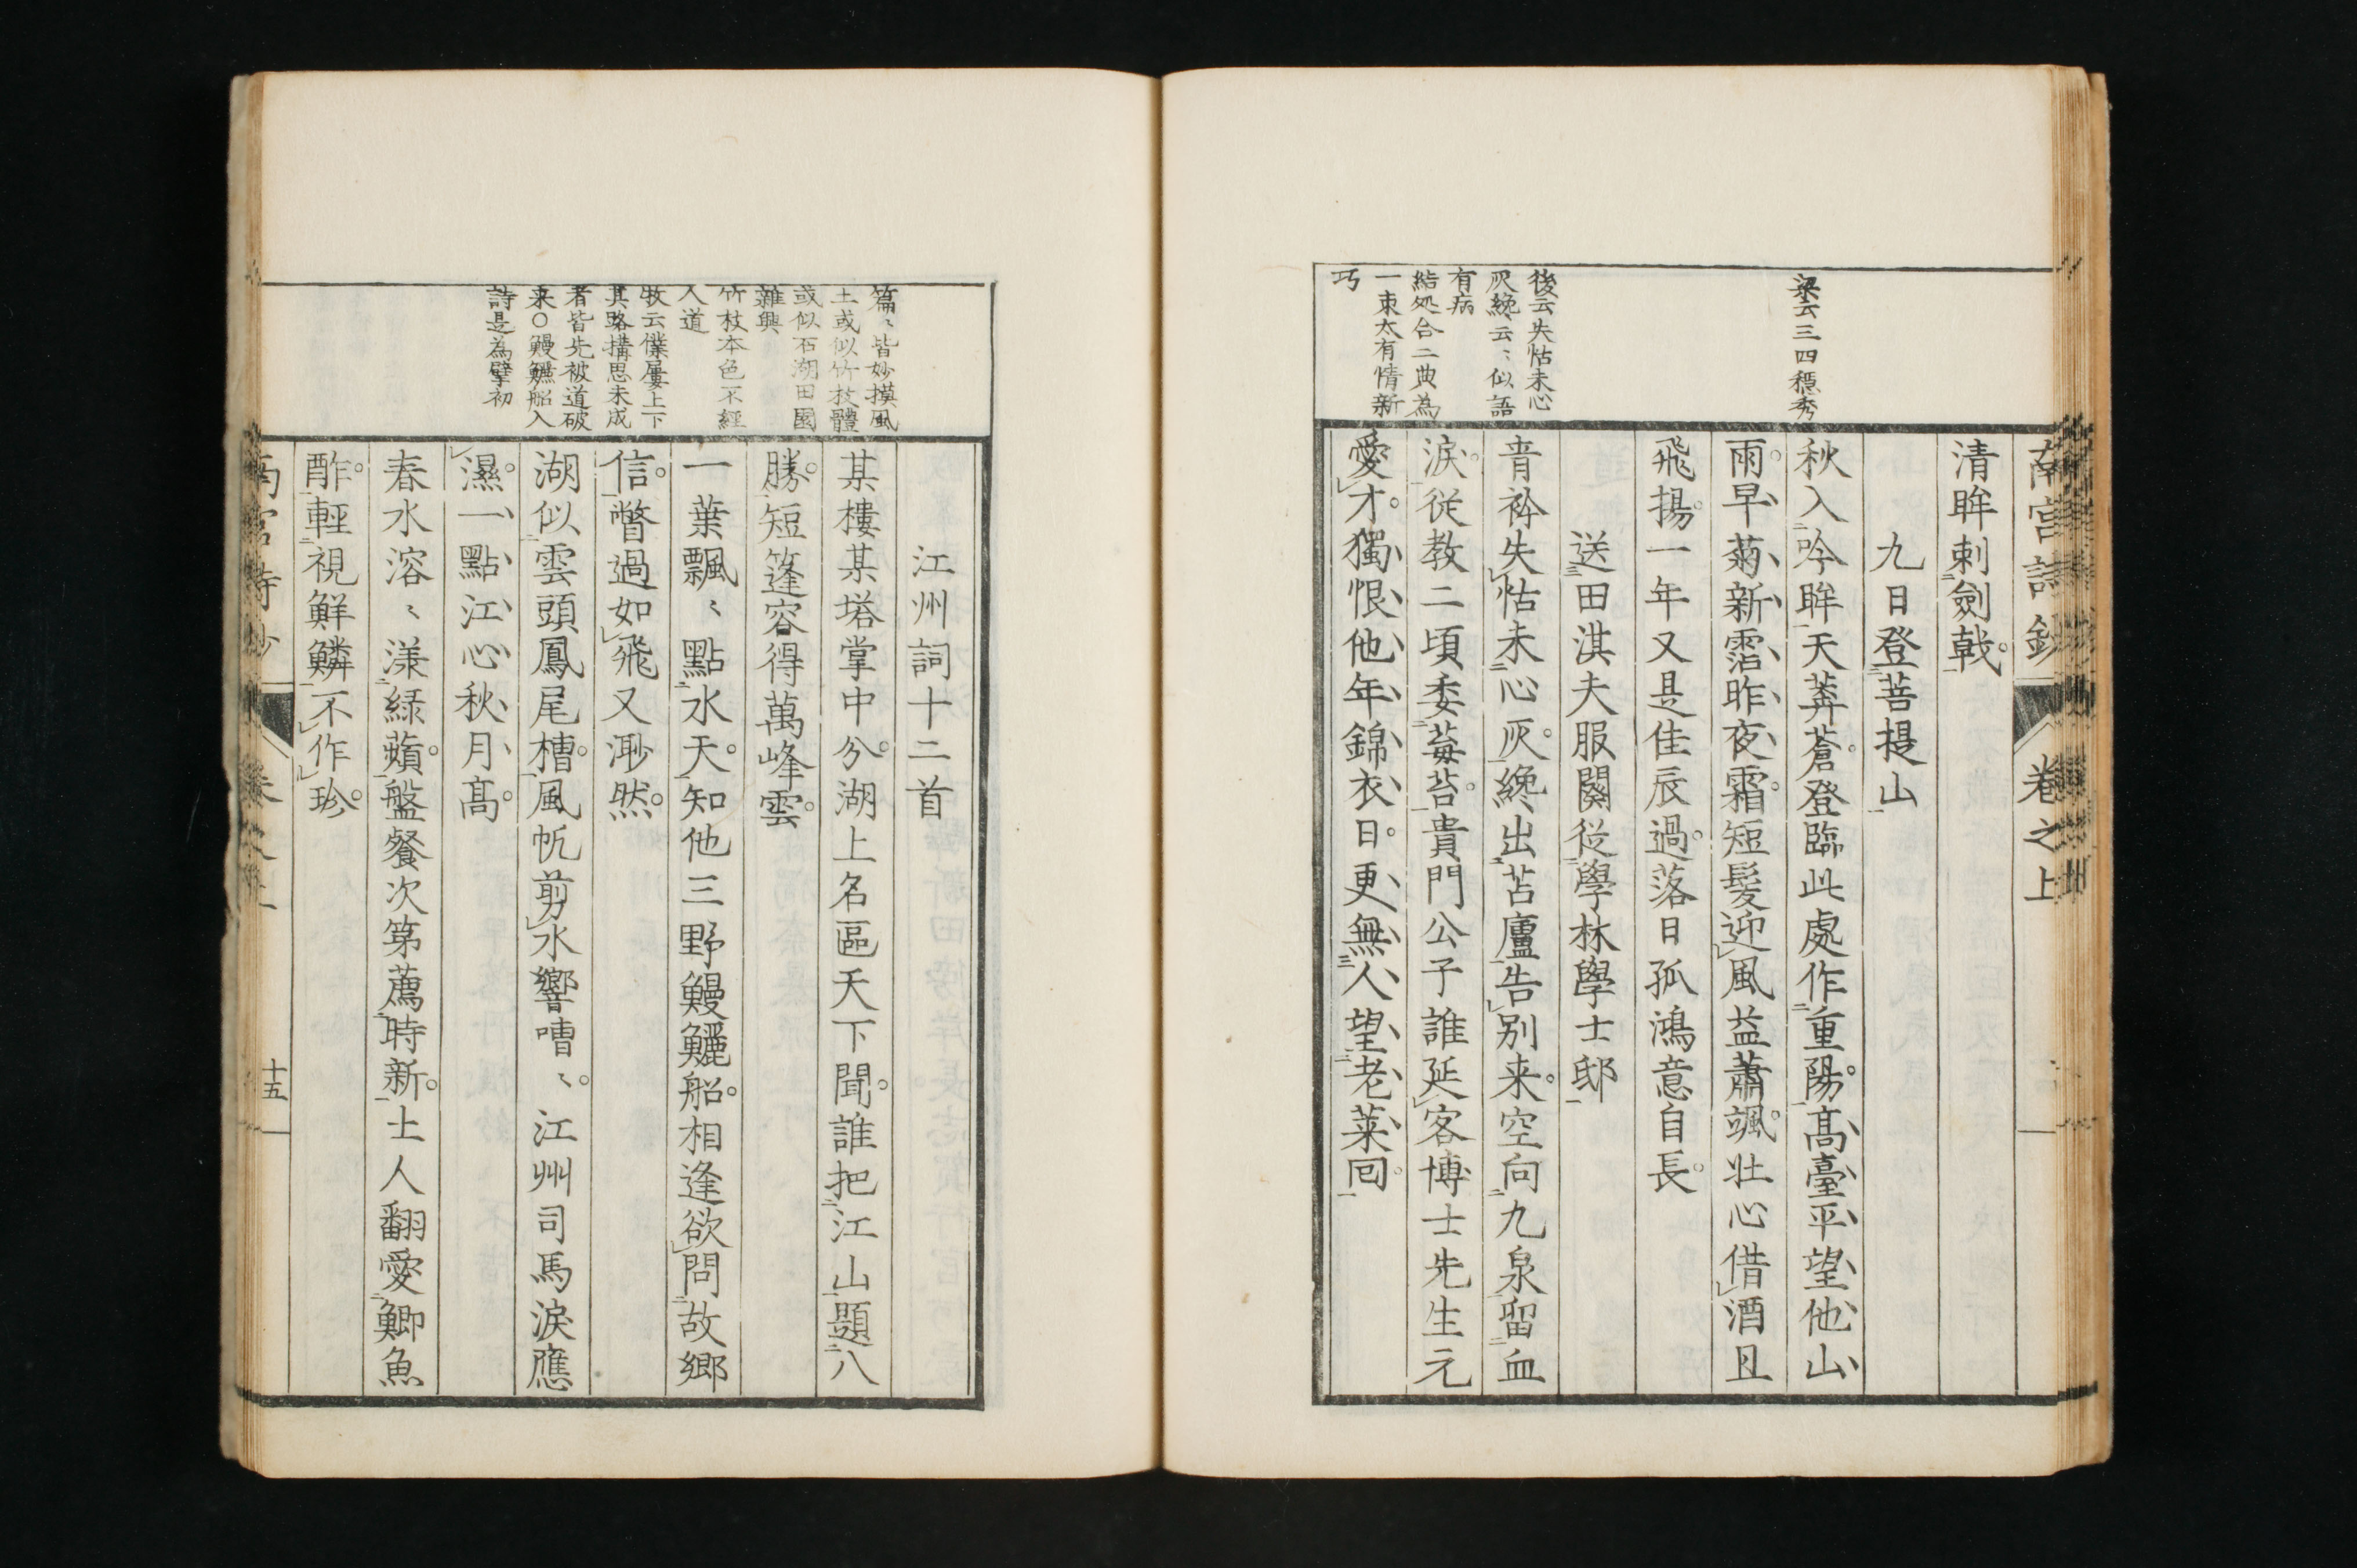 南宮詩鈔 卷之上
清眸刺劍戟
九日登菩提山
秋入吟眸天莽蒼登臨此處作重陽高臺平望他山
雨早菊新霑昨夜霜短髮迎風益蕭颯壯心借酒且
飛揚一年又是佳辰過落日孤鴻意自長
送田淇夫服闋從學林學士邸
青衿失怙未心灰纔出苫廬告別来空向九泉留血
淚從教二頃委莓苔貴門公子誰延客博士先生元
愛才獨恨他年錦衣日更無人望老萊回
梁云三四穩秀
後云失怙未心
灰纔云〻似語
有病
結処合二典為
一束太有情新
巧
江州詞十二首
某樓某塔掌中分湖上名區天下聞誰把江山題八
勝短篷容得萬峰雲
一葉飄〻點水天知他三野鰻鱺船相逢欲問故鄉
信瞥過如飛又渺然
湖似雲頭鳳尾槽風帆剪水響嘈〻江州司馬淚應
濕一點江心秋月高
春水溶〻漾緑蘋盤餐次第薦時新土人翻愛鯽魚
酢輕視鮮鱗不作珍
篇〻皆妙摸風
土或似竹枝體
或似石湖田園
雜興
竹枝本色不經
人道
牧云僕屢上下
其路搆思未成
者皆先被道破
来○鰻鱺船入
詩是為擘初
南宮詩鈔 卷之上 十五